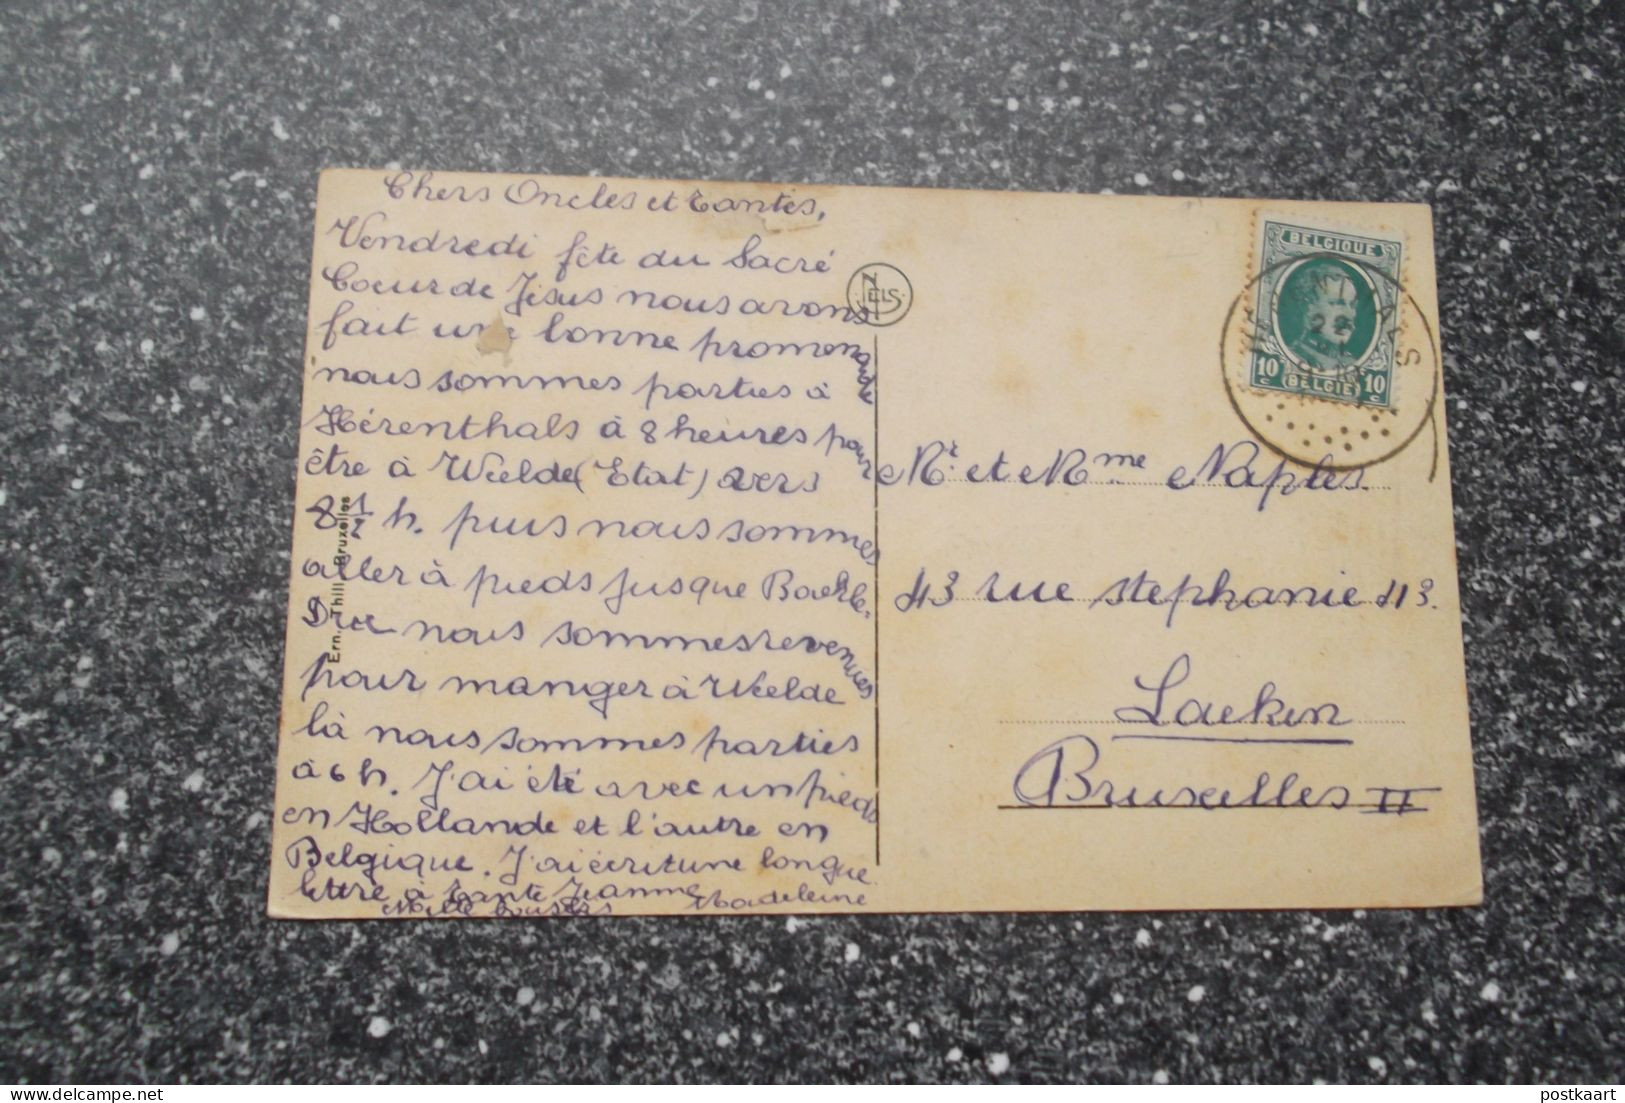 Chers Oncles et Tantes,
Vendredi fête du Sacré
Coeur de Jésus nous avons
fait une bonne promenade
nous sommes parties à
Hérenthals à 8 heures pour
être à Weelde (Etat) vers
8 1/2 h. puis nous sommes
aller à pieds jusque Baerle.
Duc nous sommes revenues
pour manger à Weelde
là nous sommes parties
à 6 h. J'ai été avec un pieds
en Hollande et l'autre en
Belgique. J'ai écrit une longue
lettre à Tante Jeanne
Mille baisers Madeleine
NELS
Ern. Thill, Bruxelles
BELGIQUE
10 c (BELGIË) 10 c
HERENTHALS
Mr. et Mme Naples.
43 rue stephanie 43.
Laeken
Bruxelles II
postkaart